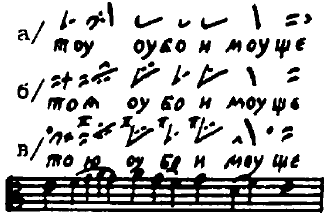 а/ тоу оу бо и моу ще
б/ том оу бо и моу ще
в/ то ю оу бо и моу ще